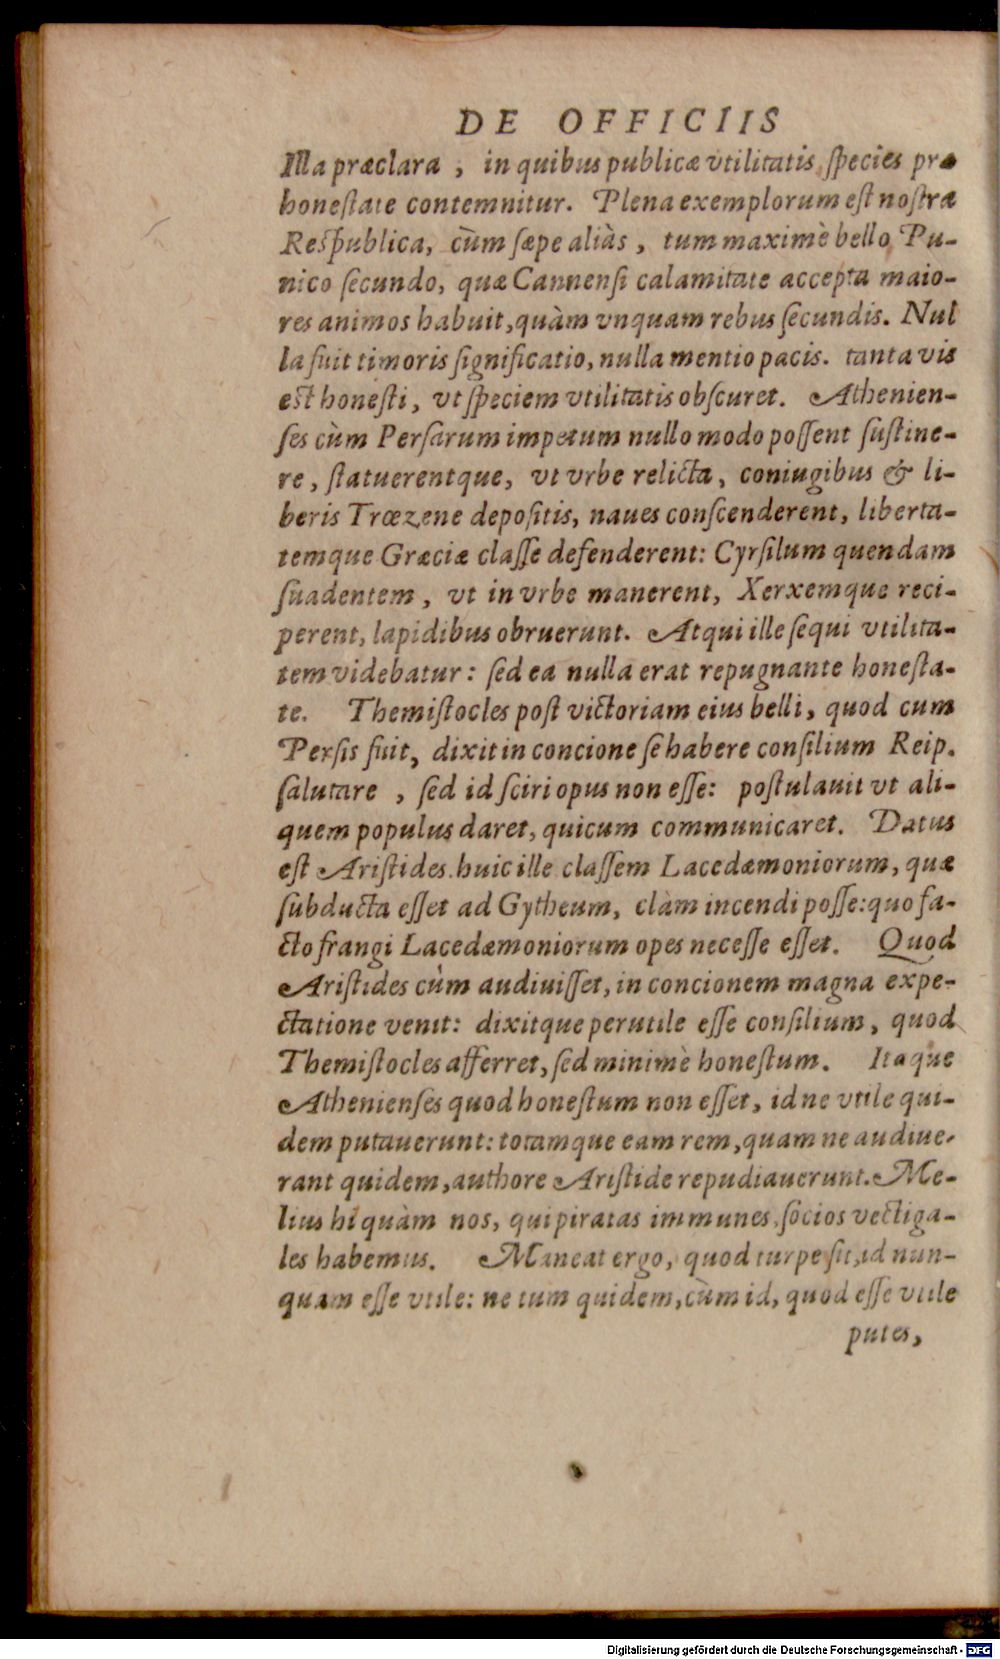 DE OFFICIIS
Illa præclara , in quibus publicæ vtilitatis ſpecies præ
honeſtate contemnitur. Plena exemplorum eſt noſtra
Reſpublica, cùm ſæpe aliàs , tum maximè bello Pu-
nico ſecundo, quæ Cannenſi calamitate accepta maio-
res animos habuit, quàm vnquam rebus ſecundis. Nul
la fuit timoris ſignificatio, nulla mentio pacis. tanta vis
est honeſti , vt ſpeciem vtilitatis obſcuret. Athenien-
ſes cùm Perſarum impetum nullo modo poſſent ſuſtine-
re , ſtatuerentque, vt vrbe relicta, coniugibus & li-
beris Trœzene depoſitis, naues conſcenderent, liberta-
temque Græciæ claſſe defenderent: Cyrſilum quendam
ſuadentem , vt in vrbe manerent, Xerxemque reci-
perent, lapidibus obruerunt. Atqui ille ſequi vtilita-
tem videbatur: ſed ea nulla erat repugnante honeſta-
te. Themiſtocles poſt victoriam eius belli, quod cum
Perſis fuit, dixit in concione ſe habere conſilium Reip.
ſalutare , ſed id ſciri opus non eſſe: poſtulauit vt ali-
quem populus daret, quicum communicaret. Datus
eſt Ariſtides. huic ille claſſem Lacedæmoniorum, quæ
ſubducta eſſet ad Gytheum, clàm incendi poſſe: quo fa-
cto frangi Lacedæmoniorum opes neceſſe eſſet. Quod
Ariſtides cùm audiuiſſet, in concionem magna expe-
ctatione venit: dixitque perutile eſſe conſilium, quod
Themiſtocles afferret, ſed minimè honeſtum. Itaque
Athenienſes quod honeſtum non eſſet, id ne vtile qui-
dem putauerunt: totamque eam rem, quam ne audiue-
rant quidem, authore Ariſtide repudiauerunt. Me-
lius hi quàm nos, qui piratas immunes, ſocios vectiga-
les habemus. Maneat ergo, quod turpe ſit, id nun-
quam eſſe vtile: ne tum quidem, cùm id, quod eſſe vtile
putes,
Digitalisierung gefördert durch die Deutsche Forschungsgemeinschaft - DFG